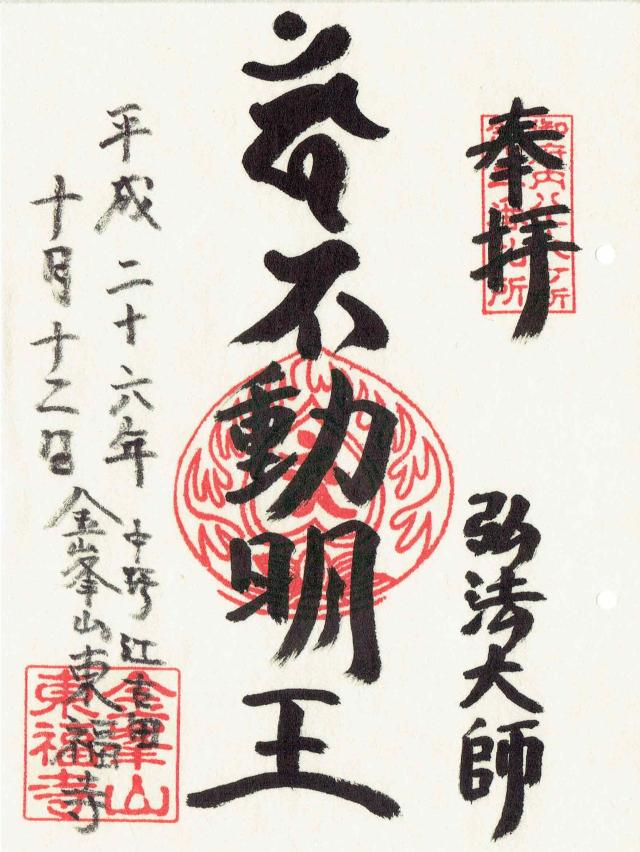 奉拝
御府内八十八ヶ所
弘法大師
不動明王
平成二十六年
中野江古田
十月十二日
金峯山東福寺
金峯山
東福寺